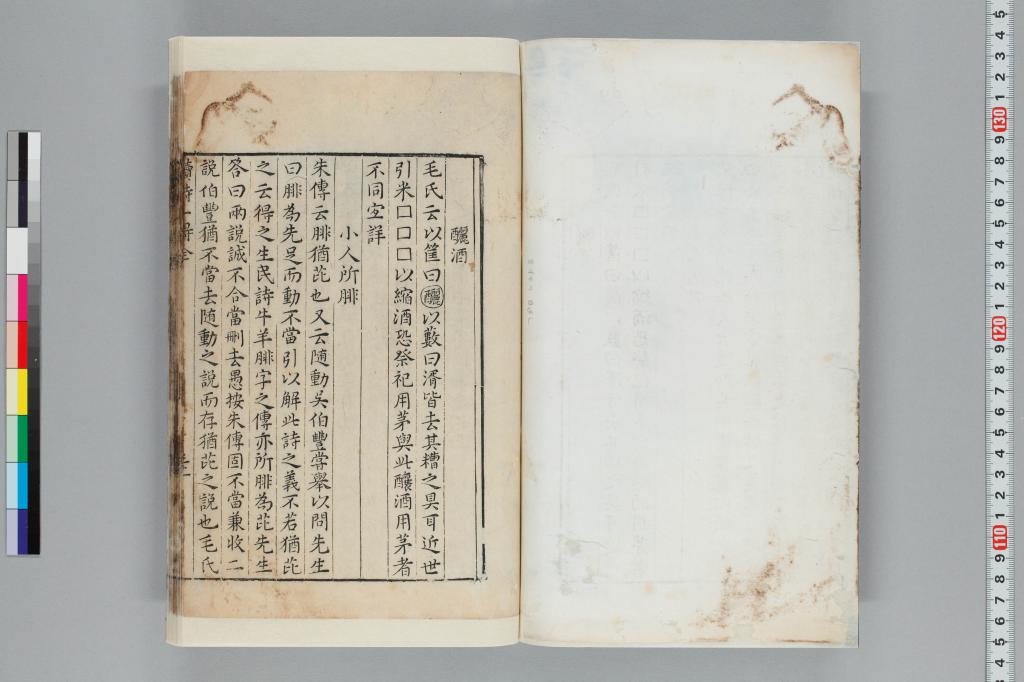 釃酒
毛氏云以筐曰釃以藪曰湑皆去其糟之具耳近世
引米口口口以縮酒恐祭祀用茅與此釃酒用茅者
不同宐詳
小人所腓
朱傳云腓猶芘也又云随動吴伯豐嘗舉以問先生
曰腓為先足而動不當引以解此詩之義不若猶芘
之云得之生民詩牛羊腓字之傳亦所腓為芘先生
答曰兩説誠不合當刪去愚按朱傳固不當兼收二
説伯豐猶不當去随動之説而存猶芘之説也毛氏
讀詩一得